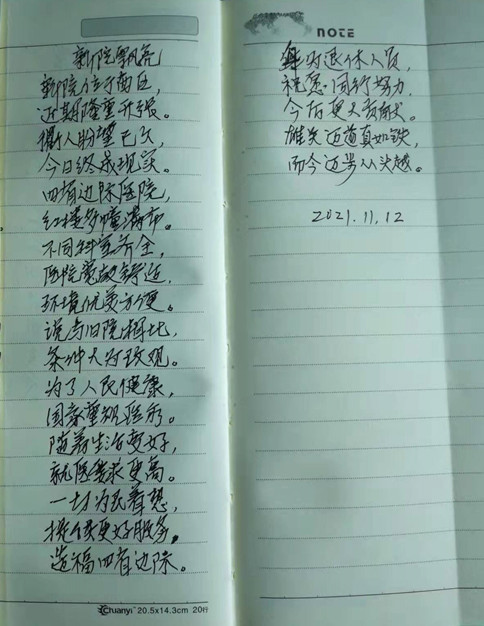 新院飘亮
新院位于南区，
近期隆重开张。
衢人盼望已久，
今日终成现实。
四省边际医院，
红楼多幢满布。
不同科室齐全，
医院宽敞舒适，
环境优美方便。
说与旧院相比，
条件大为改观。
为了人民健康，
国家重视经务。
随着生活更好，
就医要求更高。
一切为民着想，
提供更好服务，
造福四省边际。
Chuanyi 20.5x14.3cm 20行
NOTE
身为退休人员，
祝愿同行努力，
今后更大贡献。
雄关迈道真如铁，
而今迈步从头越。
2021.11.12